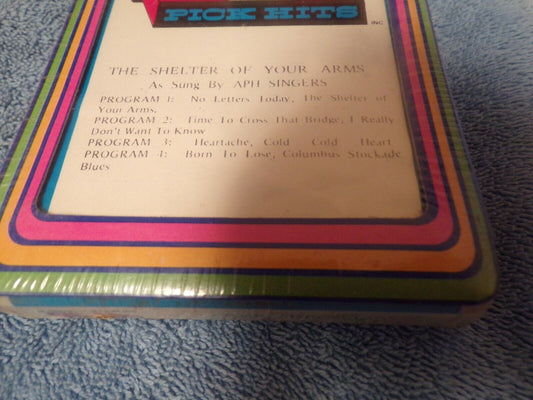 PICK HITS
INC
THE SHELTER OF YOUR ARMS
As Sung By APH SINGERS
PROGRAM 1: No Letters Today, The Shelter of
Your Arms,
PROGRAM 2: Time To Cross That Bridge, I Really
Don't Want To Know
PROGRAM 3: Heartache, Cold Cold Heart
PROGRAM 4: Born To Lose, Columbus Stockade
Blues